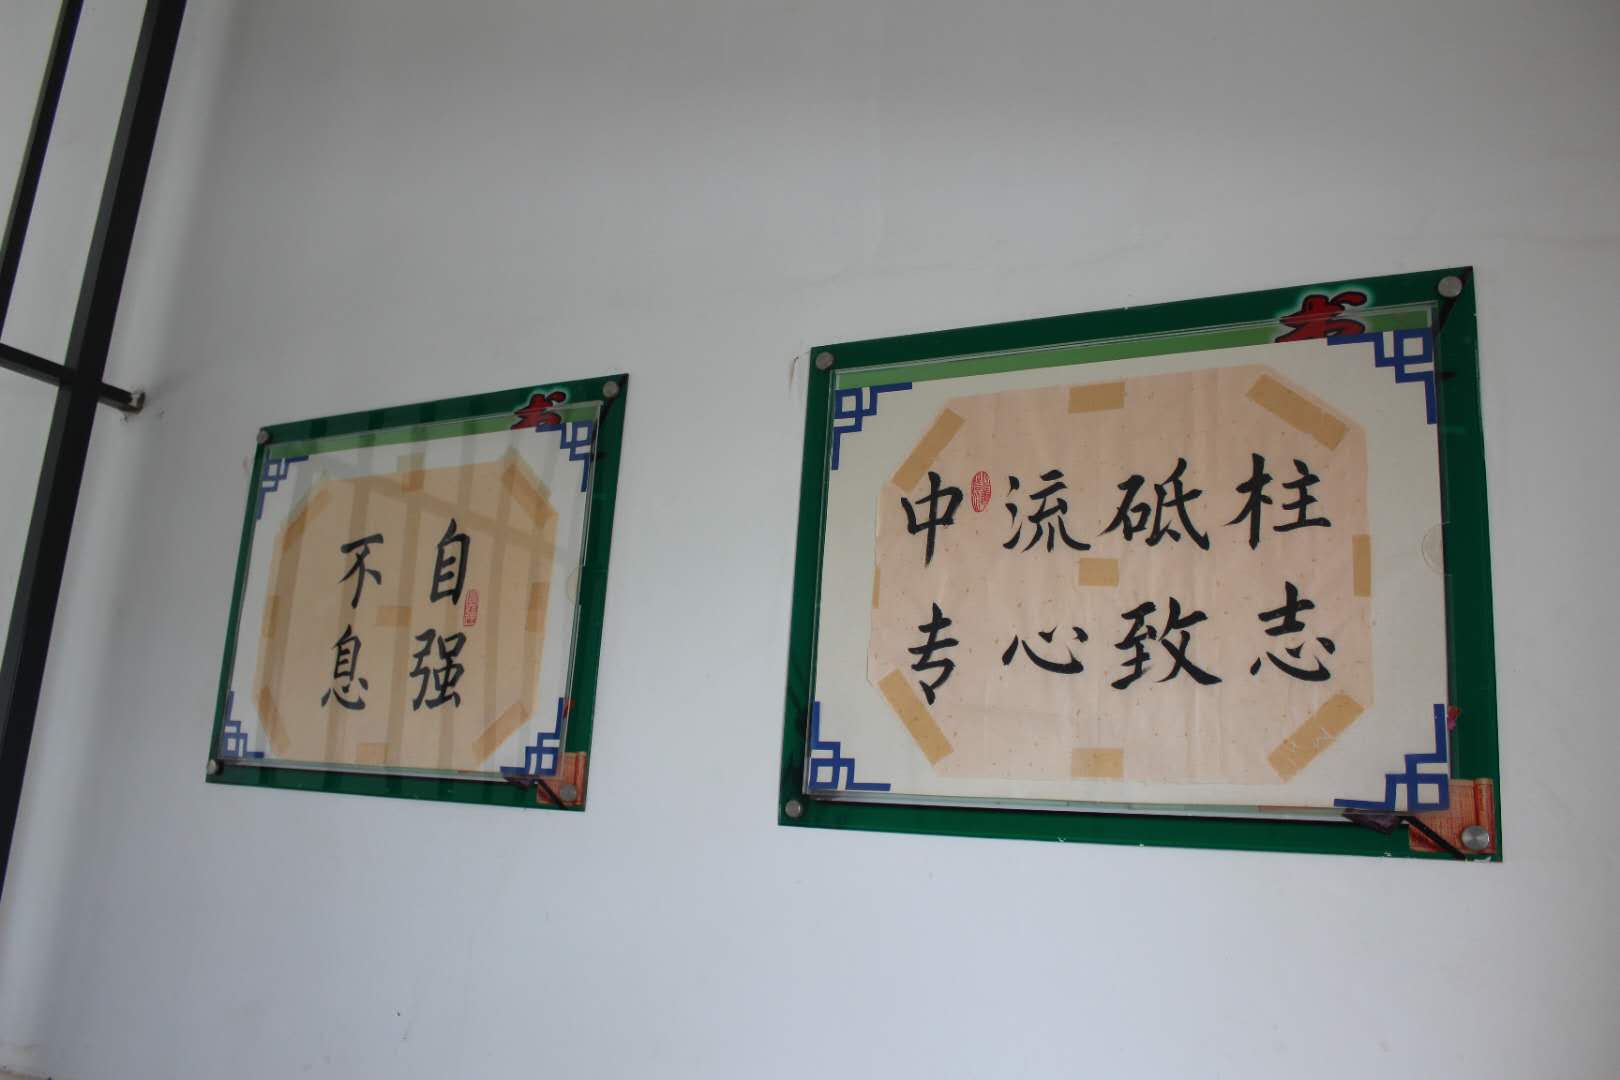 书
自强
不息
书
中流砥柱
专心致志